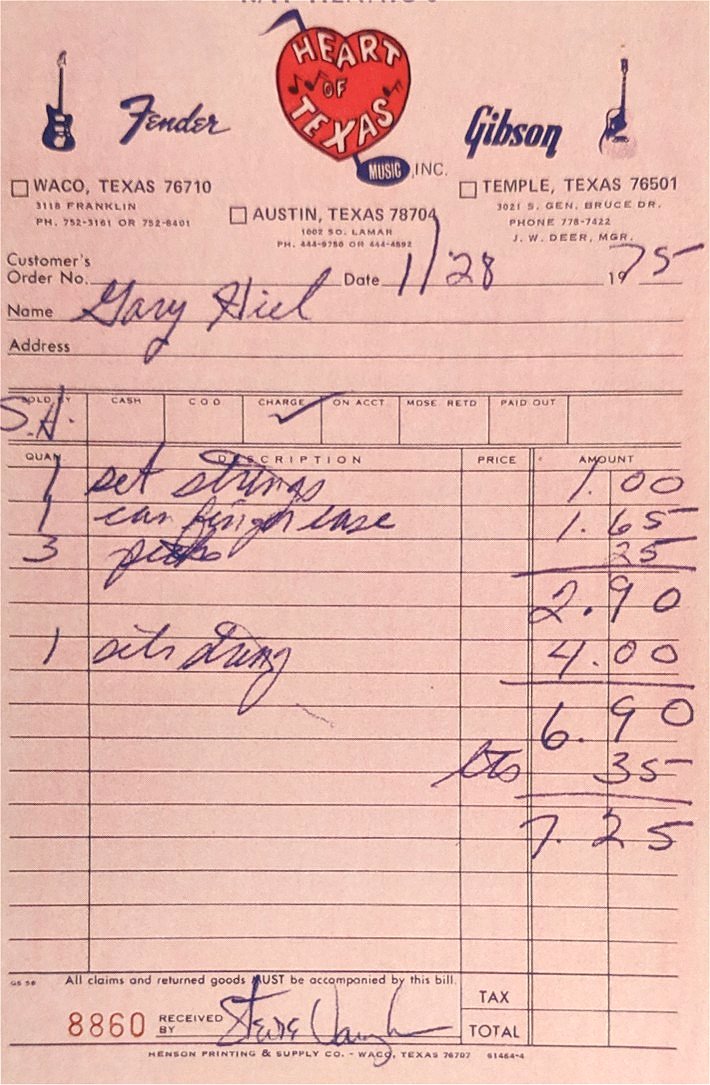 HEART
OF
TEXAS
MUSIC, INC.
Fender
Gibson
WACO, TEXAS 76710
3118 FRANKLIN
PH. 752-3161 OR 752-8401
AUSTIN, TEXAS 78704
1002 SO. LAMAR
PH. 444-9750 OR 444-4592
TEMPLE, TEXAS 76501
3021 S. GEN. BRUCE DR.
PHONE 778-7422
J. W. DEER, MGR.
Customer's
Order No. Date 1/28 1975
Name Gary Hiel
Address
SOLD BY CASH C O D CHARGE ON ACCT. MDSE. RETD. PAID OUT
S.H. ✓
QUAN. DESCRIPTION PRICE AMOUNT
1 set strings 1.00
1 can fingerease 1.65
3 picks 25
2.90
1 set string 4.00
6.90
35
7.25
GS 58 All claims and returned goods MUST be accompanied by this bill.
TAX
8860 RECEIVED BY Steve Vaughn
TOTAL
HENSON PRINTING & SUPPLY CO. - WACO, TEXAS 76707 61464-4